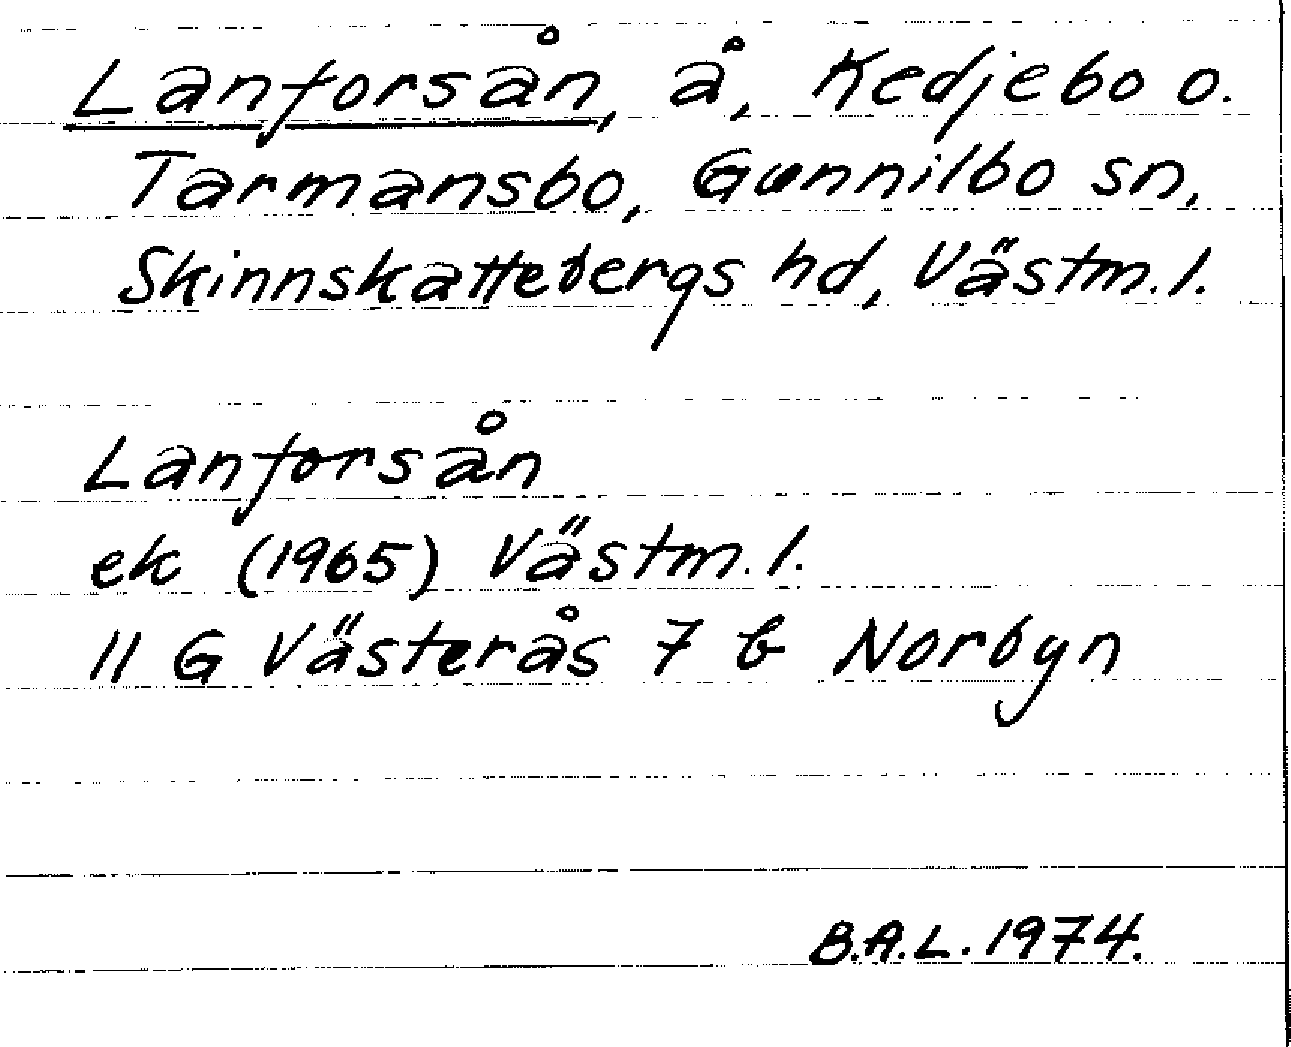 Lanforsån, å, Kedjebo o.
Tarmansbo, Gunnilbo sn,
Skinnskattebergs hd, Västm.l.
Lanforsån
ek (1965) Västm.l.
11 G Västerås 7 b Norbyn
B.A.L. 1974.